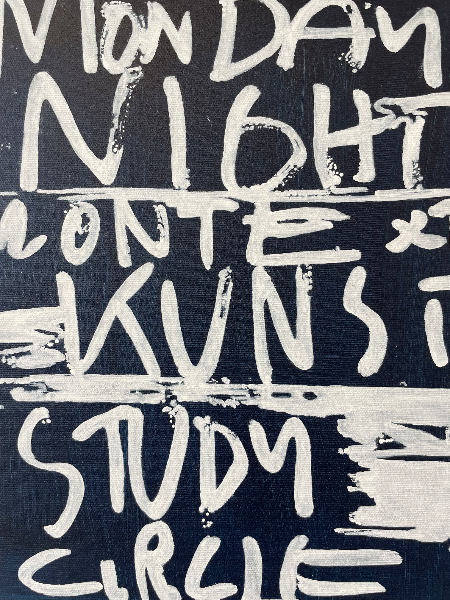 MONDAY
NIGHT
CONTEXT
KUNST
STUDY
CIRCLE